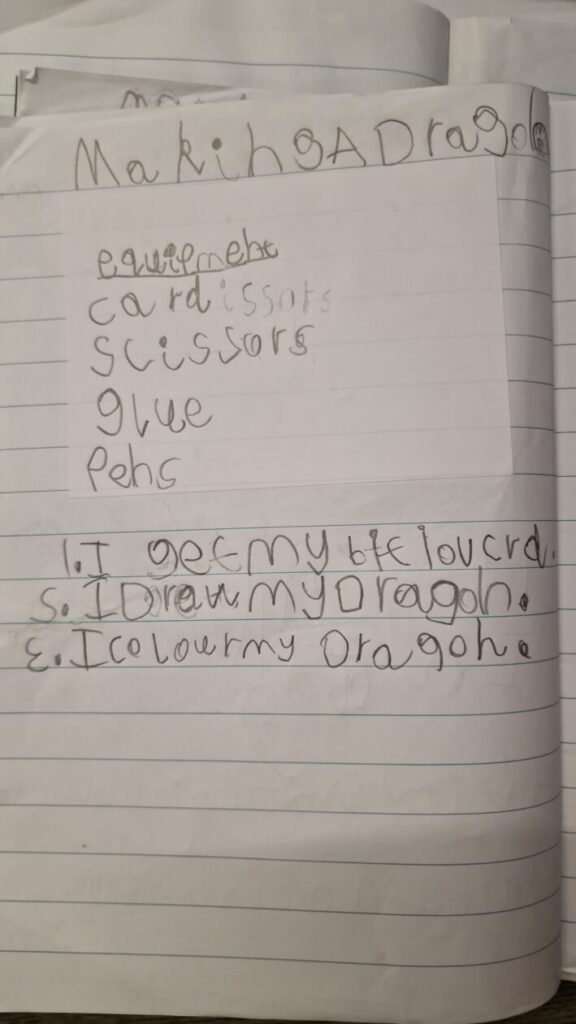 Making A Dragon
equipment
cardissors
scissors
glue
Pens
1. I get my
S. I Draw my Dragon.
3. I colour my Dragon.